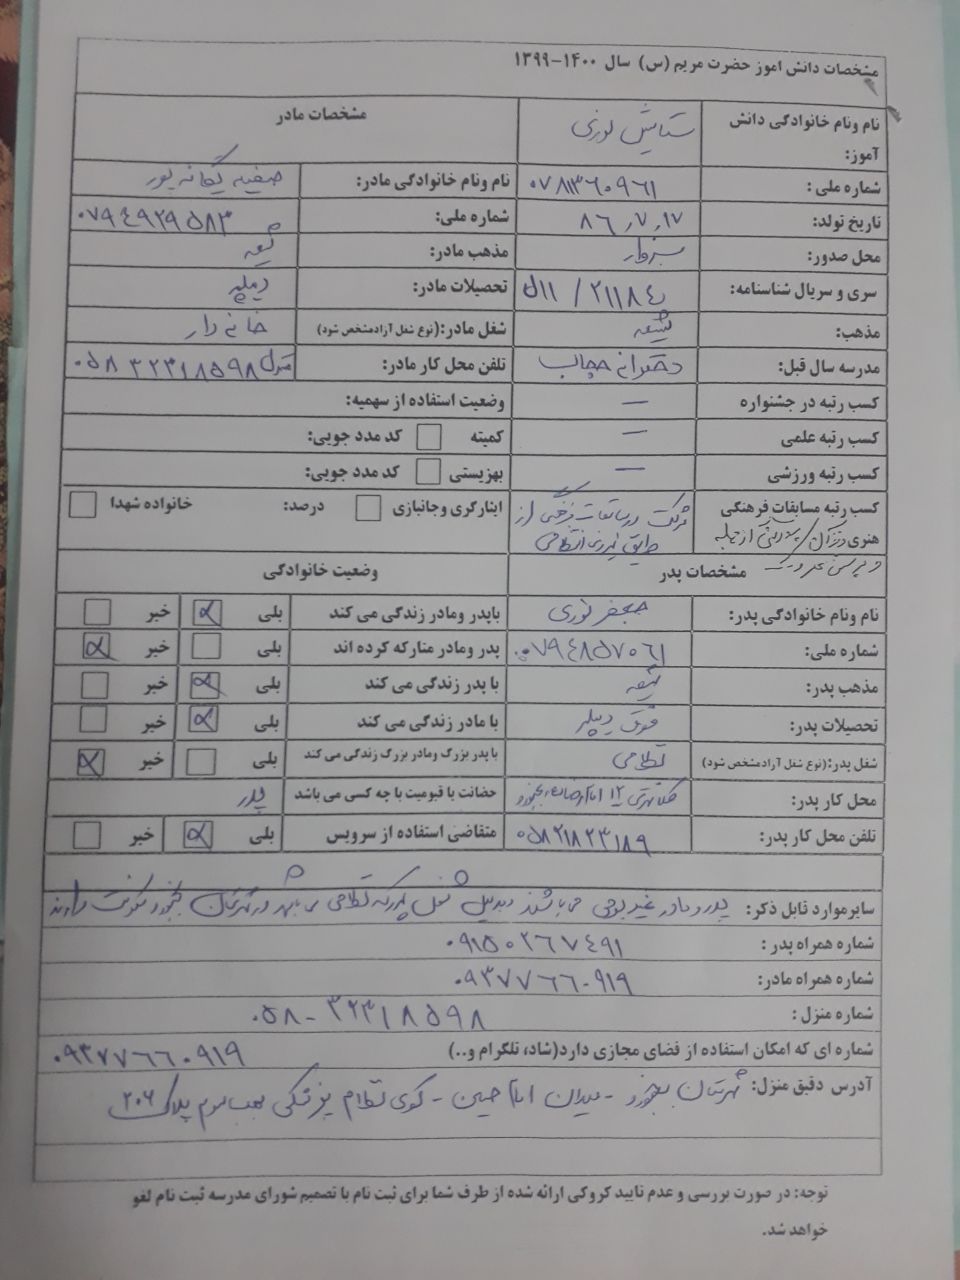 مشخصات دانش اموز حضرت مریم (س) سال ۱۴۰۰-۱۳۹۹
نام ونام خانوادگی دانش آموز: ستایش نوری
مشخصات مادر
شماره ملی: ۰۷۸۱۳۶۰۹۶۱
نام ونام خانوادگی مادر: صفیه یگانه پور
تاریخ تولد: ۸۶,۷,۱۷
شماره ملی: ۰۷۹۴۹۲۹۵۸۳
محل صدور: سبزوار
مذهب مادر: شیعه
سری و سریال شناسنامه:
تحصیلات مادر: دیپلم
مذهب: شیعه
شغل مادر:(نوع شغل آزاد مشخص شود) خانه دار
مدرسه سال قبل: دخترانه حجاب
تلفن محل کار مادر: منزل ۰۵۸۳۲۲۳۱۸۵۹۸
کسب رتبه در جشنواره —
وضعیت استفاده از سهمیه:
کسب رتبه علمی —
کمیته کد مدد جویی:
کسب رتبه ورزشی —
بهزیستی کد مدد جویی:
کسب رتبه مسابقات فرهنگی هنری و قرآن از جمله
شرکت در مسابقات فرهنگی از طریق نیروی انتظامی
ایثارگری وجانبازی درصد: خانواده شهدا
مشخصات پدر
وضعیت خانوادگی
نام ونام خانوادگی پدر: جعفر نوری
باپدر ومادر زندگی می کند بلی خیر
شماره ملی: ۰۷۹۴۸۵۷۰۶۱
پدر ومادر متارکه کرده اند بلی خیر
مذهب پدر: شیعه
با پدر زندگی می کند بلی خیر
تحصیلات پدر: فوق دیپلم
با مادر زندگی می کند بلی خیر
شغل پدر:(نوع شغل آزاد مشخص شود) نظامی
با پدر بزرگ ومادر بزرگ زندگی می کند بلی خیر
محل کار پدر: کلانتری ۱۲ امام رضا بجنورد
حضانت یا قیومیت با چه کسی می باشد پدر
تلفن محل کار پدر: ۰۵۸۲۱۸۲۳۱۸۹
متقاضی استفاده از سرویس بلی خیر
سایر موارد قابل ذکر: پدر و مادر غیر بومی می باشند و بدلیل شغل پدر که نظامی می باشد در شهرستان بجنورد سکونت دارند
شماره همراه پدر: ۰۹۱۵۰۲۶۷۴۹۱
شماره همراه مادر: ۰۹۳۷۷۶۶۰۹۱۹
شماره منزل: ۰۵۸-۳۲۲۳۱۸۵۹۸
شماره ای که امکان استفاده از فضای مجازی دارد(شاد، تلگرام و..) ۰۹۳۷۷۶۶۰۹۱۹
آدرس دقیق منزل: شهرستان بجنورد - میدان امام حسین - کوی نظام پزشکی سوم پلاک ۲۰۶
توجه: در صورت بررسی و عدم تایید کروکی ارائه شده از طرف شما برای ثبت نام با تصمیم شورای مدرسه ثبت نام لغو
خواهد شد.